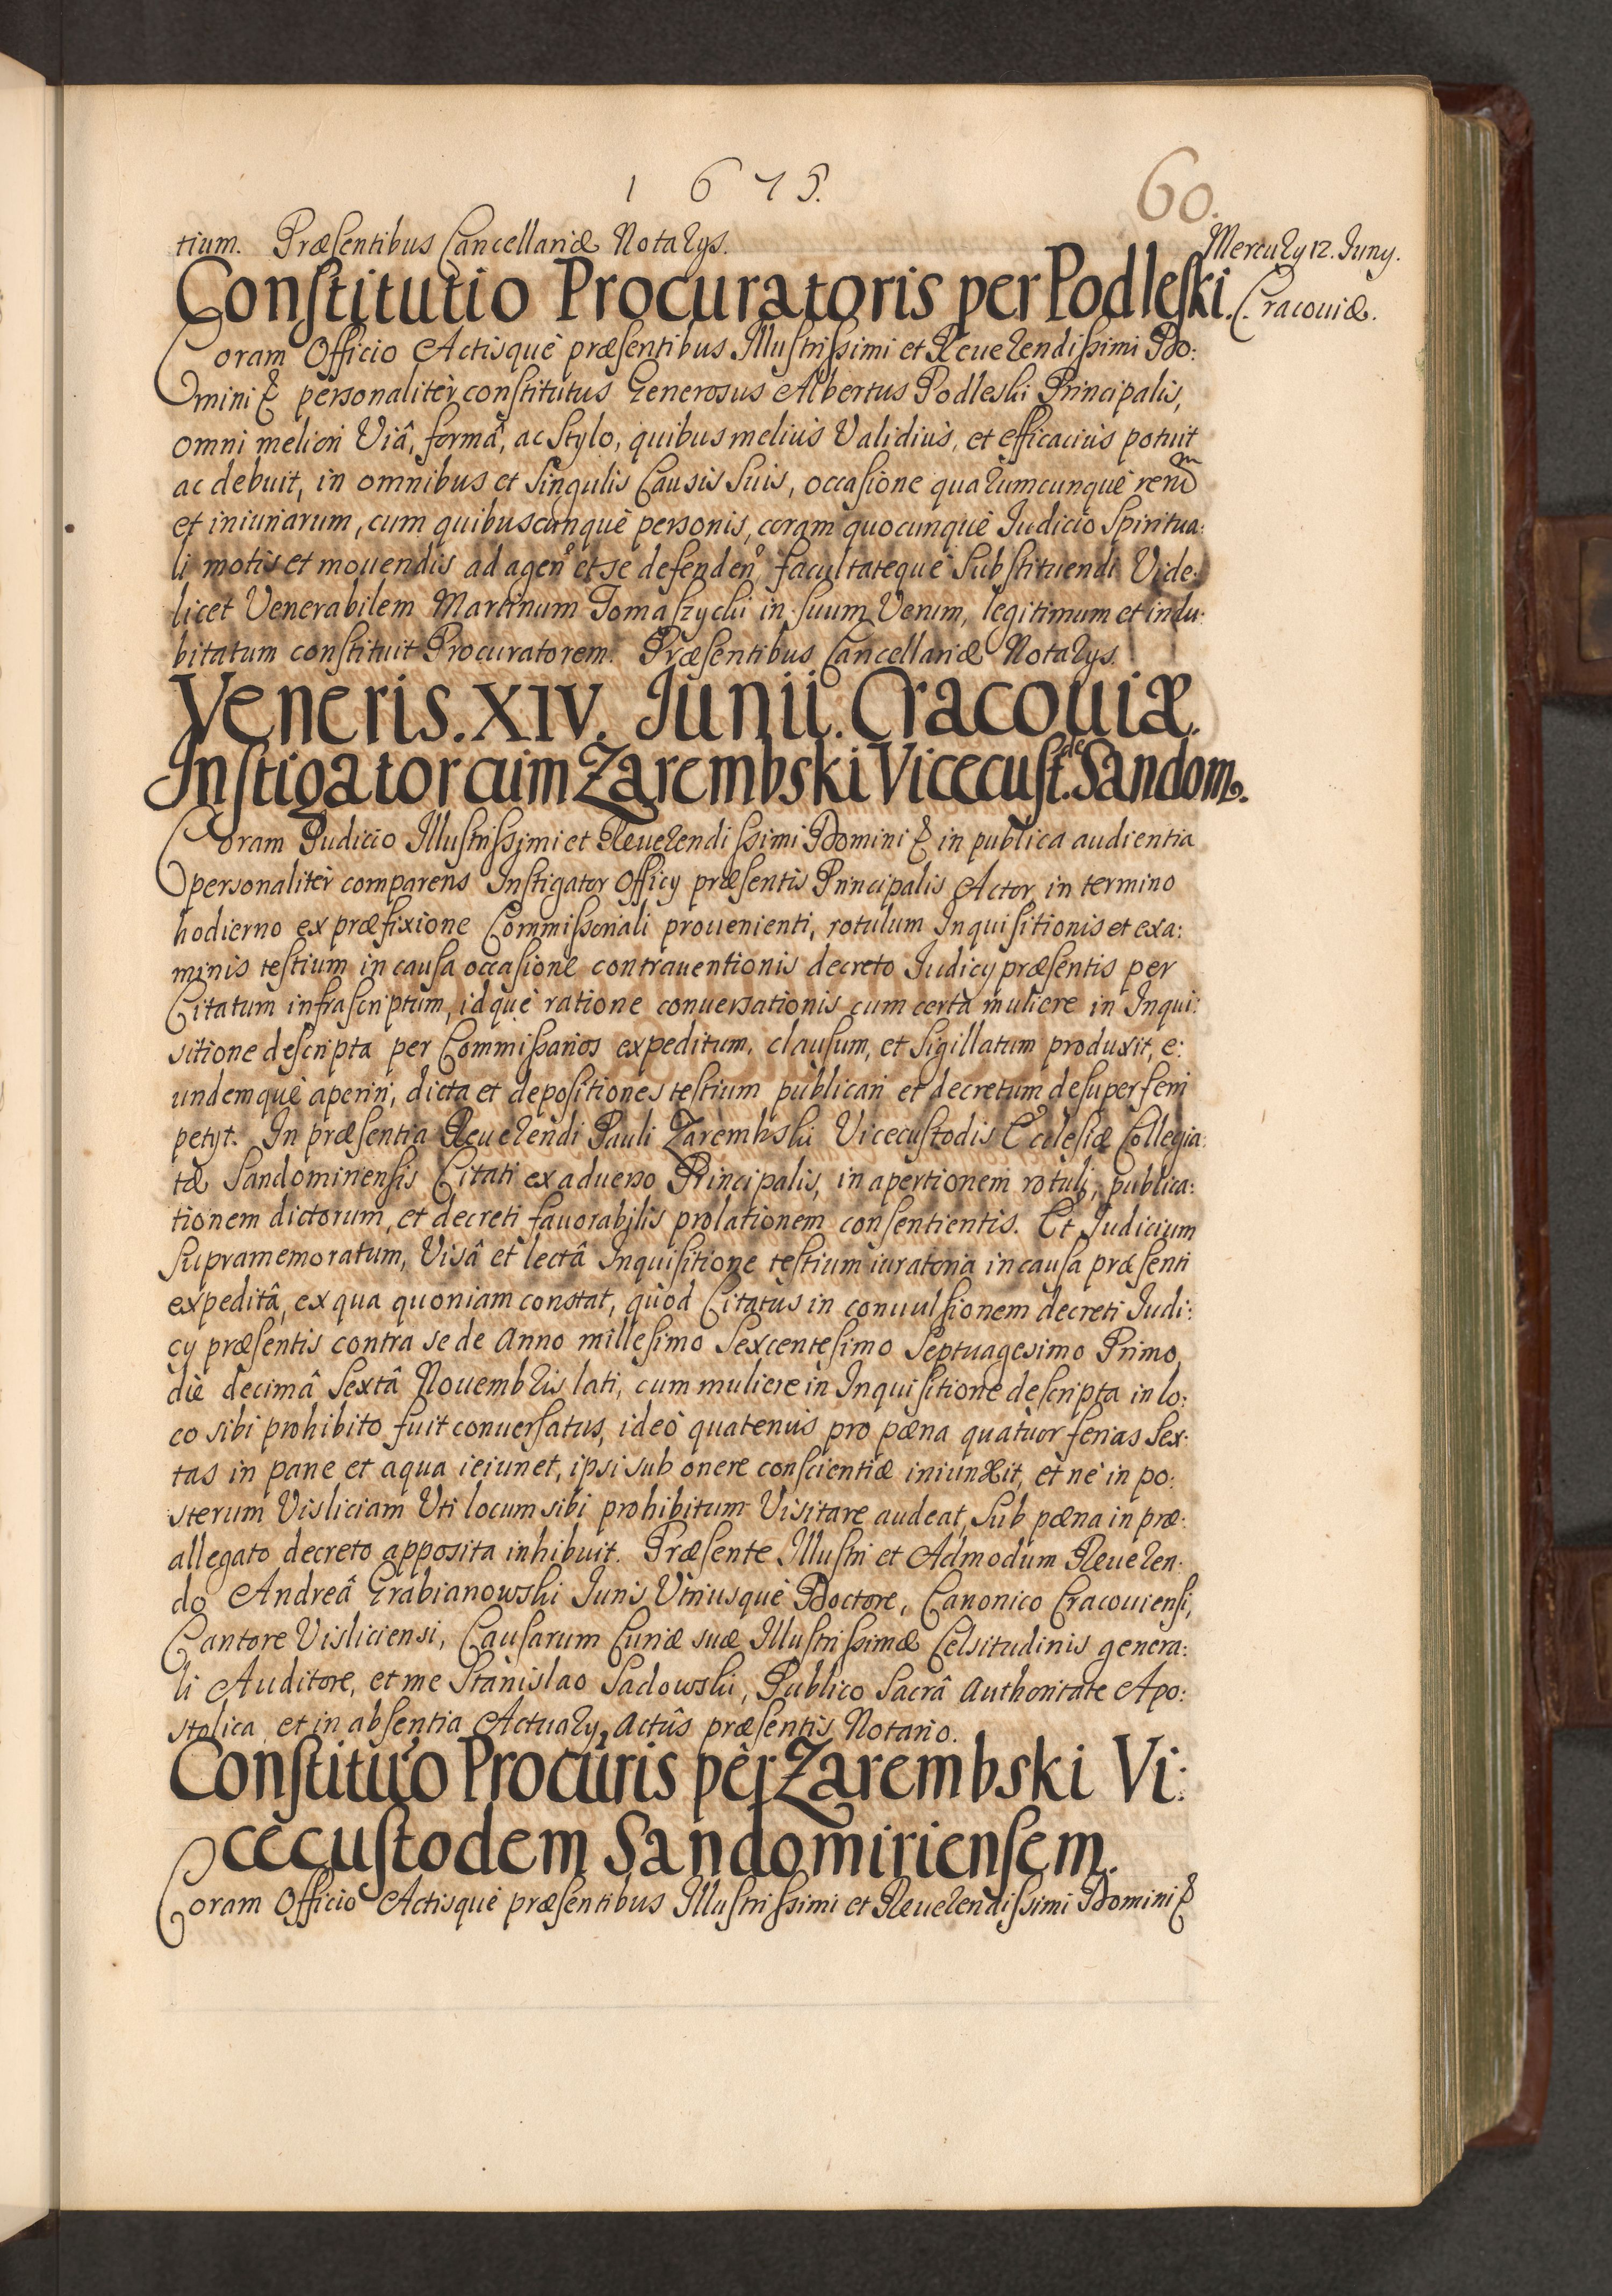 1 6 7 5.
60.
tium. Præsentibus Cancellariæ Notarys.
Mercury 12. Juny.
Cracouiæ.
Constitutio Procuratoris per Podleski.
Coram Officio Actisquè præsentibus Illustrissimi et Reuerendissimi Do:
mini & personalitèr constitutus Generosus Albertus Podleski Principalis,
omni meliori Viâ, formâ, ac Stylo, quibus melius Validius, et efficacius potuit
ac debuit, in omnibus et singulis Causis suis, occasione quarumcunquè rerum
et iniuriarum, cum quibuscunquè personis, coram quocunquè Judicio Spiritua:
li motis et mouendis ad agen° et se defenden°, facultatequè Substituendi Vide:
licet Venerabilem Martinum Tomaszycki in suum Verum, legitimum et indu:
bitatum constituit Procuratorem. Præsentibus Cancellariæ Notarys.
Veneris. XIV. Junii. Cracouiæ.
Instigator cum Zarembski Vicecust.de Sandom.
Coram Judicio Illustrissimi et Reuerendissimi Domini & in publica audientia
personalitèr comparens Instigator Officy præsentis Principalis Actor, in termino
hodierno ex præfixione Commissoriali prouenienti, rotulum Inquisitionis et exa:
minis testium in causa occasione contrauentionis decreto Judicy præsentis per
Citatum infrascriptum, idquè ratione conuersationis cum certa muliere in Inqui:
sitione descripta per Commissarios expeditum, clausum, et sigillatum produxit, e:
undemquè aperiri, dicta et depositiones testium publicari et decretum desuper ferri
petyt. In præsentia Reuerendi Pauli Zarembski Vicecustodis Ecclesiæ Collegia:
tæ Sandomiriensis Citati ex aduerso Principalis, in apertionem rotuli, publica:
tionem dictorum, et decreti fauorabilis prolationem consentientis. Et Judicium
supramemoratum, Visâ et lectâ Inquisitione testium iuratoria in causa præsenti
expeditâ, ex qua quoniam constat, quòd Citatus in conuulsionem decreti Judi:
cy præsentis contra se de Anno millesimo Sexcentesimo Septuagesimo Primo,
diè decimâ Sextâ Nouembris lati, cum muliere in Inquisitione descripta in lo:
co sibi prohibito fuit conuersatus, ideò quatenus pro pæna quatuor ferias sex:
tas in pane et aqua ieiunet, ipsi sub onere conscientiæ iniunxit, et nè in po:
sterum Visliciam Uti locum sibi prohibitum Visitare audeat, sub pæna in præ:
allegato decreto apposita inhibuit. Præsente Illustri et Admodum Reueren:
do Andreâ Grabianowski Juris Utriusquè Doctore, Canonico Cracouiensi,
Cantore Visliciensi, Causarum Curiæ suæ Illustrissimæ Celsitudinis genera:
li Auditore, et me Stanislao Sadowski, Publico Sacrâ Authoritate Apo:
stolica, et in absentia Actuary, Actûs præsentis Notario.
Constitu'o Procuris per Zarembski Vi:
cecustodem Sandomiriensem.
Coram Officio Actisquè præsentibus Illustrissimi et Reuerendissimi Domini &